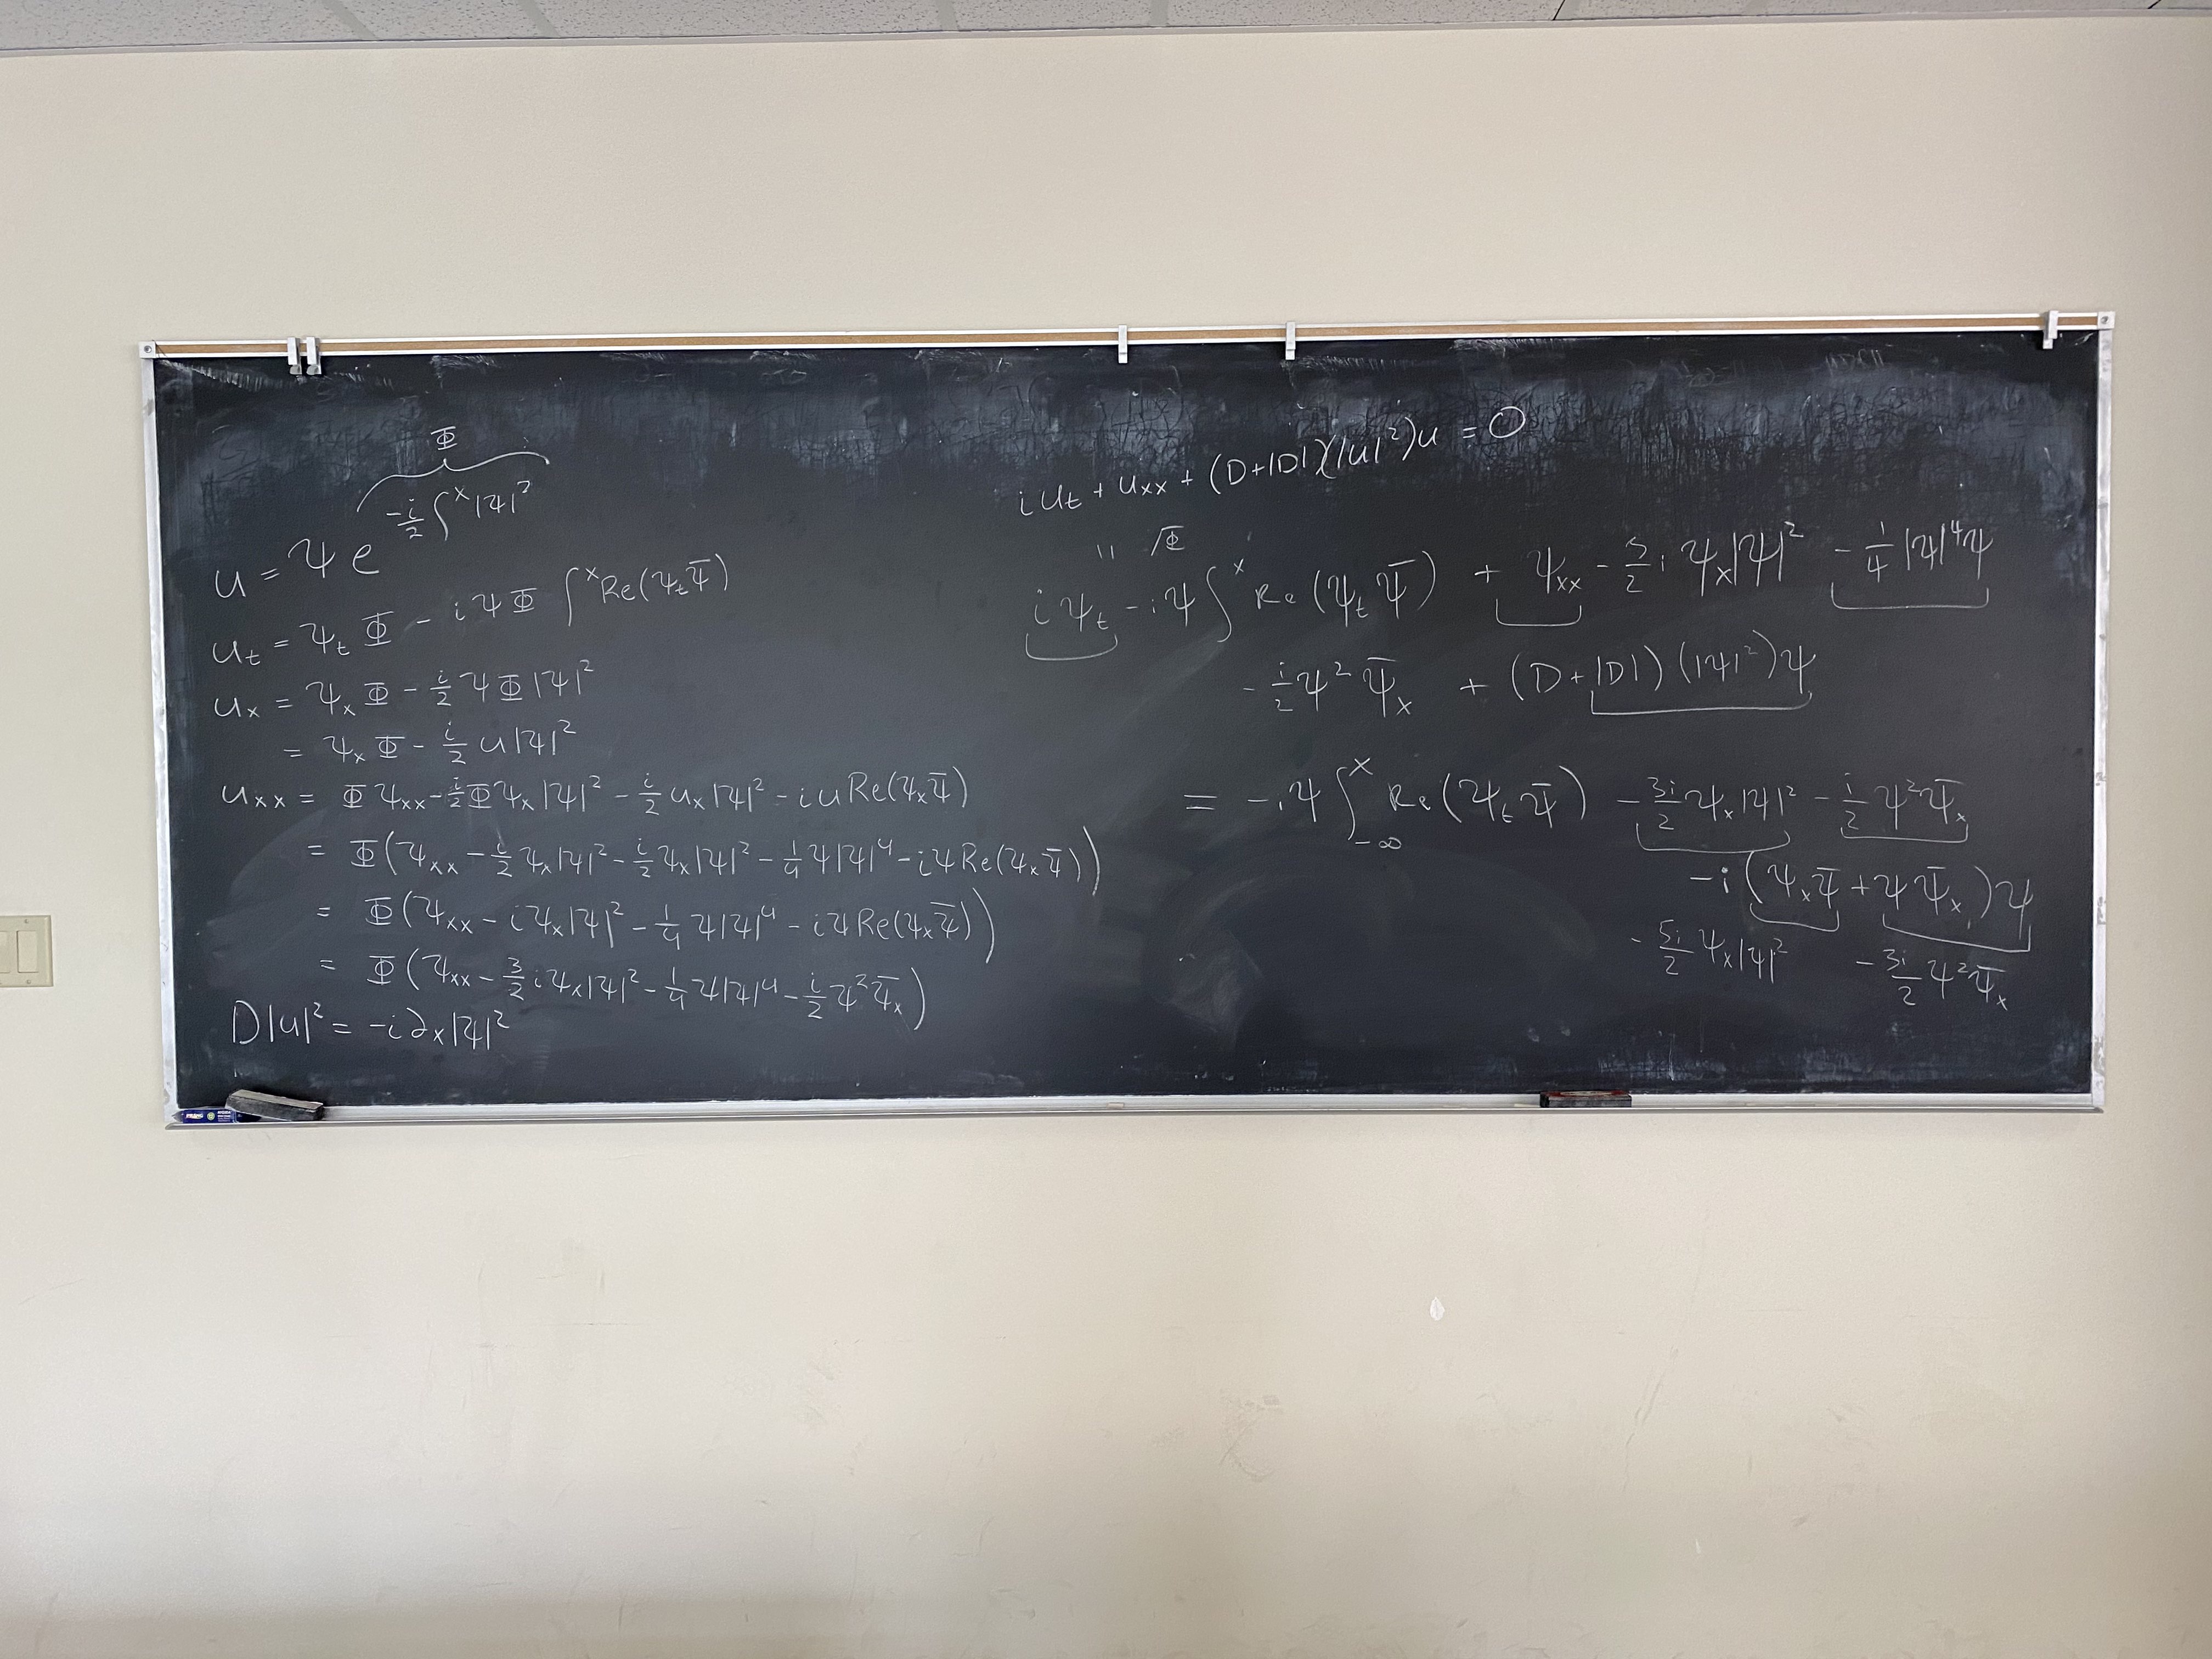 Φ
u = ψ e^{-i/2 ∫^x |ψ|²}
u_t = ψ_t Φ - iψΦ ∫^x Re(ψ_t ψ̄)
u_x = ψ_x Φ - i/2 ψΦ|ψ|²
= ψ_x Φ - i/2 u|ψ|²
u_xx = Φψ_xx - i/2 Φψ_x|ψ|² - i/2 u_x|ψ|² - iu Re(ψ_x ψ̄)
= Φ(ψ_xx - i/2 ψ_x|ψ|² - i/2 ψ_x|ψ|² - 1/4 ψ|ψ|⁴ - iψ Re(ψ_x ψ̄))
= Φ(ψ_xx - iψ_x|ψ|² - 1/4 ψ|ψ|⁴ - iψ Re(ψ_x ψ̄))
= Φ(ψ_xx - 3/2 iψ_x|ψ|² - 1/4 ψ|ψ|⁴ - i/2 ψ² ψ̄_x)
D|u|² = -i∂_x|ψ|²
iu_t + u_xx + (D+|D|)(|u|²)u = 0
" /Φ
iψ_t - iψ ∫^x Re(ψ_t ψ̄) + ψ_xx - 5/2 i ψ_x|ψ|² - 1/4 |ψ|⁴ψ
- i/2 ψ² ψ̄_x + (D+|D|)(|ψ|²)ψ
= -iψ ∫_{-∞}^x Re(ψ_t ψ̄) - 3i/2 ψ_x|ψ|² - i/2 ψ² ψ̄_x
-i(ψ_x ψ̄ + ψ ψ̄_x)ψ
- 5i/2 ψ_x|ψ|² - 3i/2 ψ² ψ̄_x